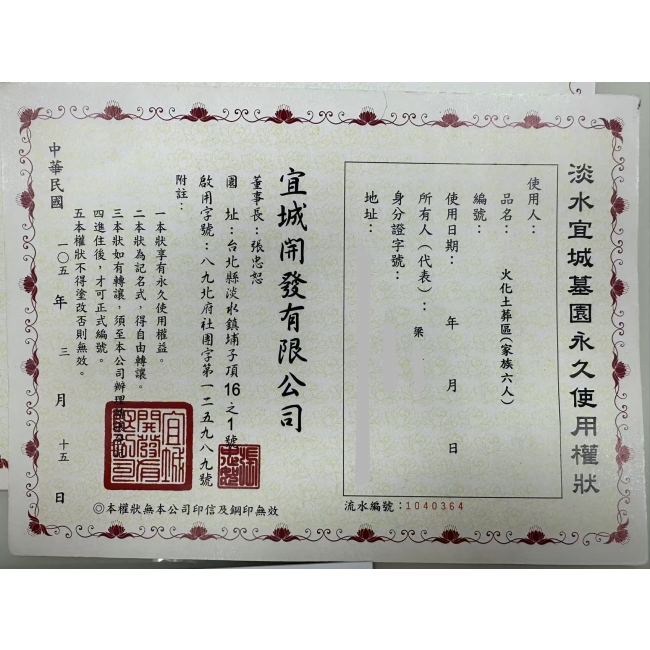 淡水宜城墓園永久使用權狀
使用人：
品名： 火化土葬區(家族六人)
編號：
使用日期： 年 月 日
所有人（代表）： 梁
身分證字號：
地址：
流水編號：1040364
宜城開發有限公司
董事長：張忠恕
園 址：台北縣淡水鎮埔子頂16之1號
啟用字號：八九北府社園字第一二五九八九號
附註：
一本狀享有永久使用權益。
二本狀為記名式，得自由轉讓。
三本狀如有轉讓，須至本公司辦理
四進住後，才可正式編號。
五本權狀不得塗改否則無效。
中華民國 一〇五 年 三 月 十五 日
宜城開發有
◎本權狀無本公司印信及鋼印無效